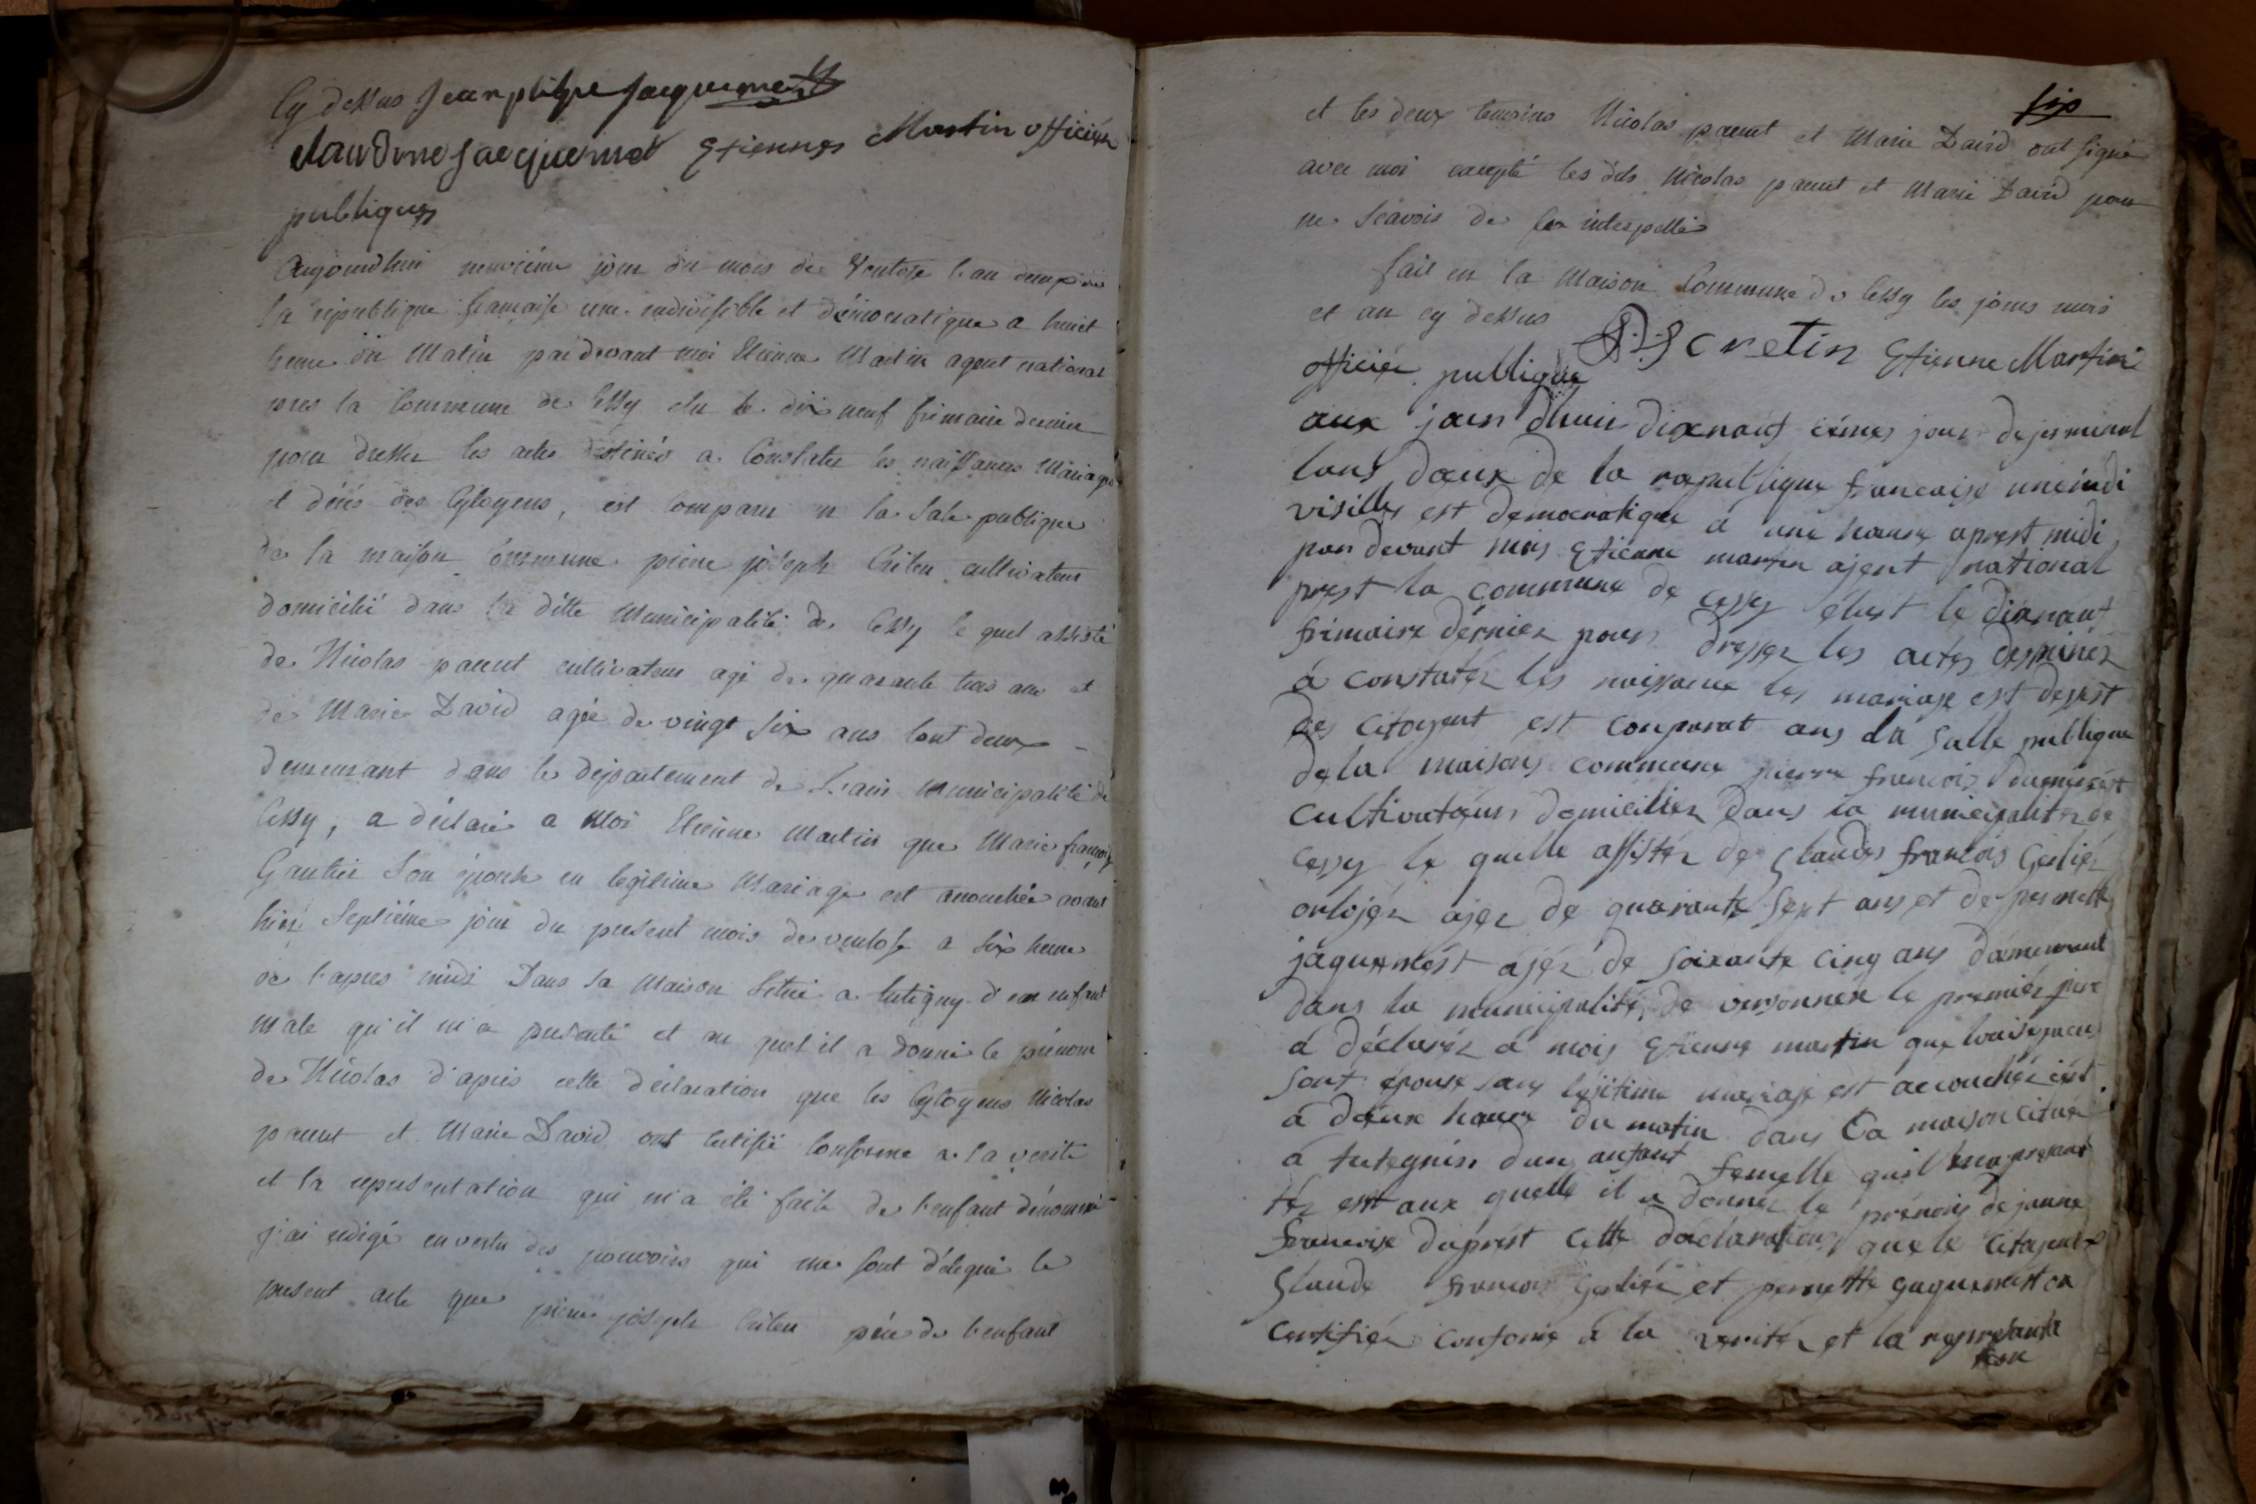 Cy dessus Jean philipe Jacquemet
claudine Jacquemet Etiennes Martin officier
publiques
Aujourdhui neuvième jour du mois de Ventose l'an deuxième
la république francaise une indivisible et démocratique a huit
heure du Matin pardevant moi Etienne Martin agent national
pres la Commune de Cessy elu le dix neuf frimaire dernier
pour dresser les actes destinés a Constater les naissances Mariages
et décès des Cytoyens, est comparu en la Sale publique
de la maison Commune pierre joseph cultivateur
domicilié dans la ditte Municipalité de Cessy le quel assisté
de Nicolas parent cultivateur agé de quarante trois ans et
de Marie David agée de vingt six ans tout deux
demeurant dans le département de L'ain municipalité de
Cessy, a déclaré a Moi Etienne Martin que Marie françoise
Gautier Son épouse en legitime Mariage est accouchée avant
hier Septième jour du present mois de ventose a six heure
de l'apres midi Dans sa Maison Située a tutigny d'un enfant
male qu'il m'a présenté et au quel il a donné le prénom
de Nicolas d'apres cette déclaration que les Cytoyens Nicolas
parent et Marie David ont certifié Conforme a la verité
et la representation qui m'a été faite de l'enfant dénommé
j'ai redigé en vertu des pouvoirs qui me sont délégué le
present acte que pierre joseph père de l'enfant
six
et les deux temoins Nicolas parent et Marie David ont signé
avec moi excepté les dits Nicolas parent et Marie David pour
ne scavoir de les interpellé
fait en la Maison Commune de Cessy les jours mois
et an cy dessus cretin Etienne Martin
officier publique
aux jour dhui dixneuf ièmes jour de jerminal
lans deux de la republique francaise une indi
visilles est democratique à une heure aprest midi
par devant moy Etienne martin ajent national
prest la commune de cessy élust le dixneuf
frimaire dérnier pour dresser les actes destinés
à constatér les naissance les mariage est desest
des citoyent est comparut ans la salle publique
de la maisons commune pierre francois
cultivateur domicilier dans la municipalité de
cessy le quelle assistér de Glaudes francois
orlojér ajér de quarante sept ans et de pernette
jaquemost ajér de soixante cinq ans demeurant
dans la municipalité de versonnex le premier
à déclarér à mois Etienne martin que louise
sont épouse sans lejitime mariaje est accouchér
à deux heure du matin dans la maison cituée
à tutegnis dun anfant femelle quil ma presant
tér est aux quelle il a donner le prénois de janne
francoise daprest cette declaration que le citoyent
Glaude francois et pernette gaquemost on
certifiér confome à la verité et la represanta
tion